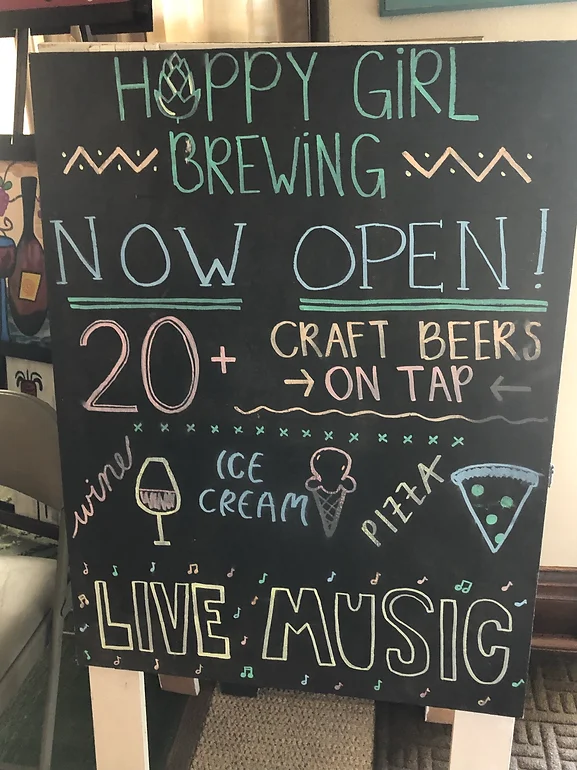 HOPPY GiRL
BREWiNG
NOW OPEN!
20+ CRAFT BEERS
→ ON TAP ←
wine ICE CREAM PIZZA
LIVE MUSIC